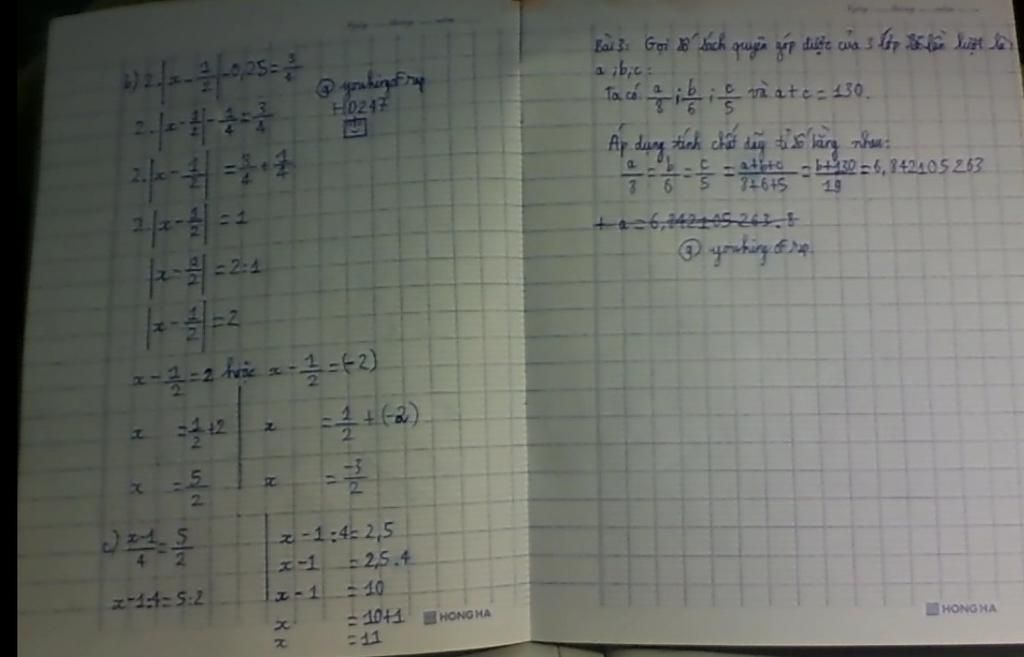 b) 2.|x - 1/2| - 0,25 = 3/4
@ youkingofrap
+0247
2.|x - 1/2| - 1/4 = 3/4
2.|x - 1/2| = 3/4 + 1/4
2.|x - 1/2| = 1
|x - /2| = 2:1
|x - 1/2| = 2
x - 1/2 = 2 hoặc x - 1/2 = (-2)
x = 1/2 + 2
x = 5/2
x = 1/2 + (-2)
x = -3/2
c) x-1/4 = 5/2
x-1:4 = 5:2
x - 1:4 = 2,5
x - 1 = 2,5.4
x - 1 = 10
x = 10+1
x = 11
HONG HA
Bài 3: Gọi số sách quyên góp được của 3 lớp lần lượt là:
a ;b;c:
Ta có a/8 ; b/6 ; c/5 và a+c = 130.
Áp dụng tính chất dãy tỉ số bằng nhau:
a/8 = b/6 = c/5 = a+b+c/8+6+5 = b+130/19 = 6,842105263
+ a = 6,842105263.8
@ youkingofrap.
HONG HA